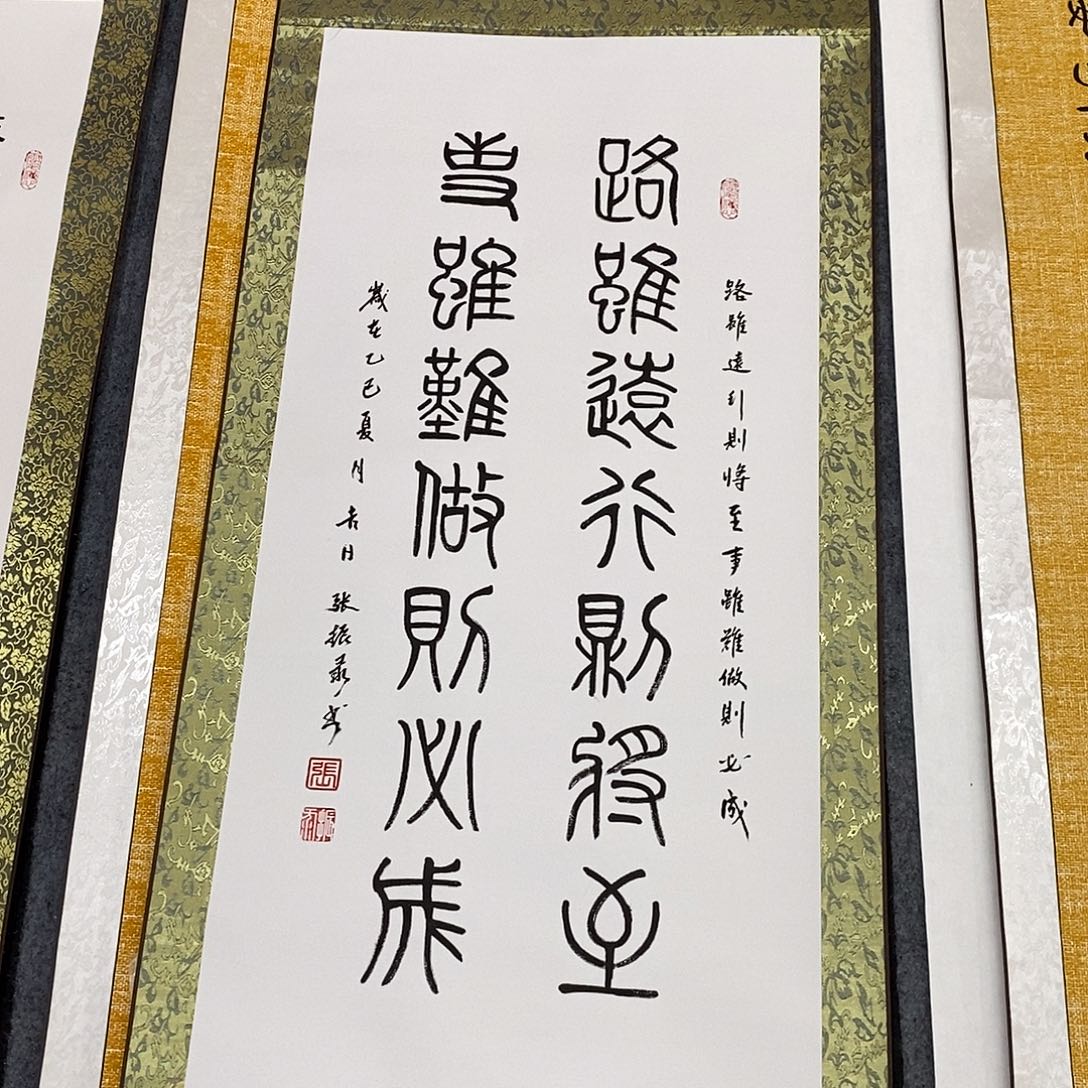 路雖遠行則將至事雖難做則必成
路雖遠行則將至
事雖難做則必成
歲在乙巳夏月吉日张振
張